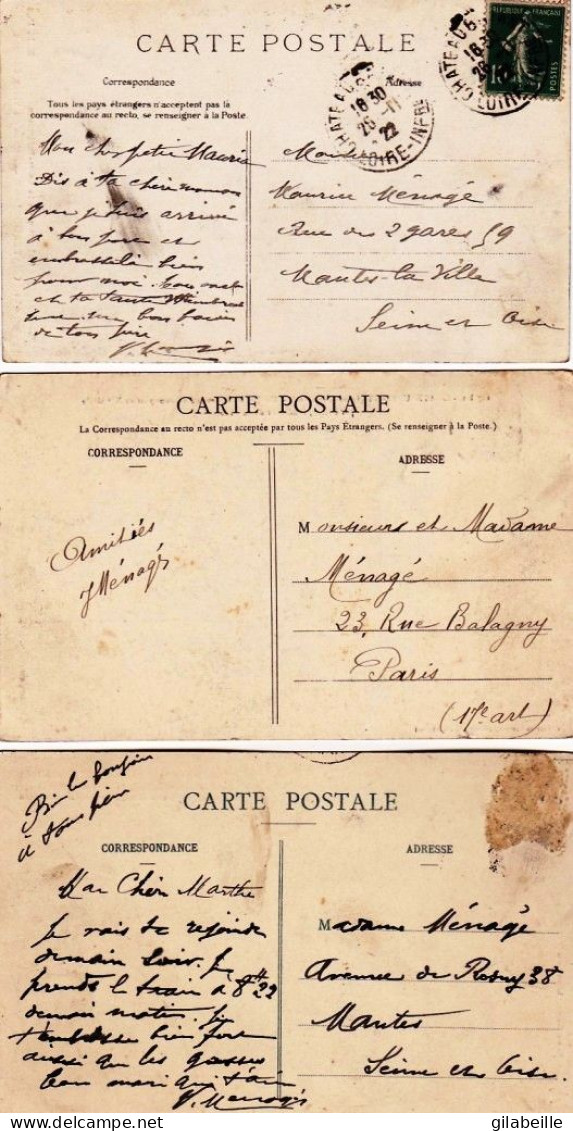 CARTE POSTALE
Correspondance
Adresse
Tous les pays étrangers n'acceptent pas la
correspondance au recto, se renseigner à la Poste.
RÉPUBLIQUE FRANÇAISE
POSTES
18 30
26 -11
22
LOIRE-INFRE
Mon cher petit Maurice
Dis à ta chère maman
que je suis arrivé
à bon port et
embrasse la bien
pour moi
et ta Tante
bons baisers
de ton père
Maurice Ménagé
Rue des 2 gares 59
Mantes-la Ville
Seine et Oise
CARTE POSTALE
La Correspondance au recto n'est pas acceptée par tous les Pays Étrangers. (Se renseigner à la Poste.)
CORRESPONDANCE
ADRESSE
Amitiés
Ménagé
Monsieur et Madame
Ménagé
23, Rue Balagny
Paris
(17e art)
à tous bien
CARTE POSTALE
CORRESPONDANCE
ADRESSE
Ma Chère Marthe
Je vais te rejoindre
demain soir. Je
prends le train à 8H22
demain matin. Je
t'embrasse bien fort
ainsi que les gosses
ton mari qui t'aime
Ménagé
Madame Ménagé
Avenue de Rosny 38
Mantes
Seine et Oise.
© gilabeille